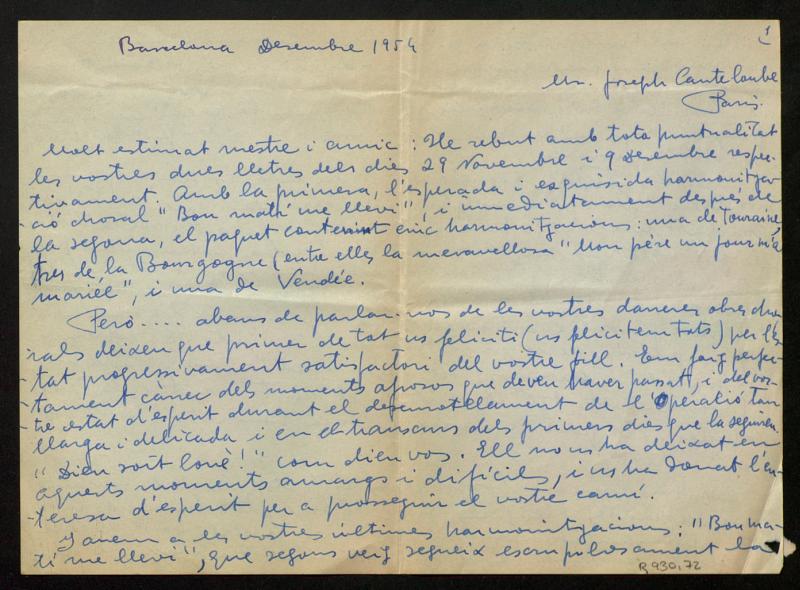 1
Barcelona Desembre 1954
Mr. Joseph Canteloube
Paris.
Molt estimat mestre i amic: He rebut amb tota puntualitat
les vostres dues lletres dels dies 29 Novembre i 9 Desembre respec-
tivament. Amb la primera, l'esperada i exquisida harmonitza-
ció choral "Bon matí me lleví", i inmediatament després de
la segona, el paquet contenint cinc harmonitzacions: una de Touraine,
tres de la Bourgogne (entre elles la meravellosa "Mon père un jour m'a
mariée", i una de Vendée.
Però.... abans de parlar-vos de les vostres darreres obres cho-
rals deixeu que primer de tot us feliciti (us felicitem tots) per l'es-
tat progressivament satisfactori del vostre fill. Em faig perfec-
tament càrrec dels moments afrosos que deveu haver passat, i del vos-
tre estat d'esperit durant el desenrotllament de l'Operació tan
llarga i delicada i en el transcurs dels primers dies que la seguiren.
"Dieu soit loué!" com dieu vos. Ell no us ha deixat en
aquests moments amargs i difícils, i us ha donat l'en-
teresa d'esperit per a prosseguir el vostre camí.
I anem a les vostres últimes harmonitzacions: "Bon ma-
tí me lleví", que segons veig segueix escrupulosament la
R 930,72